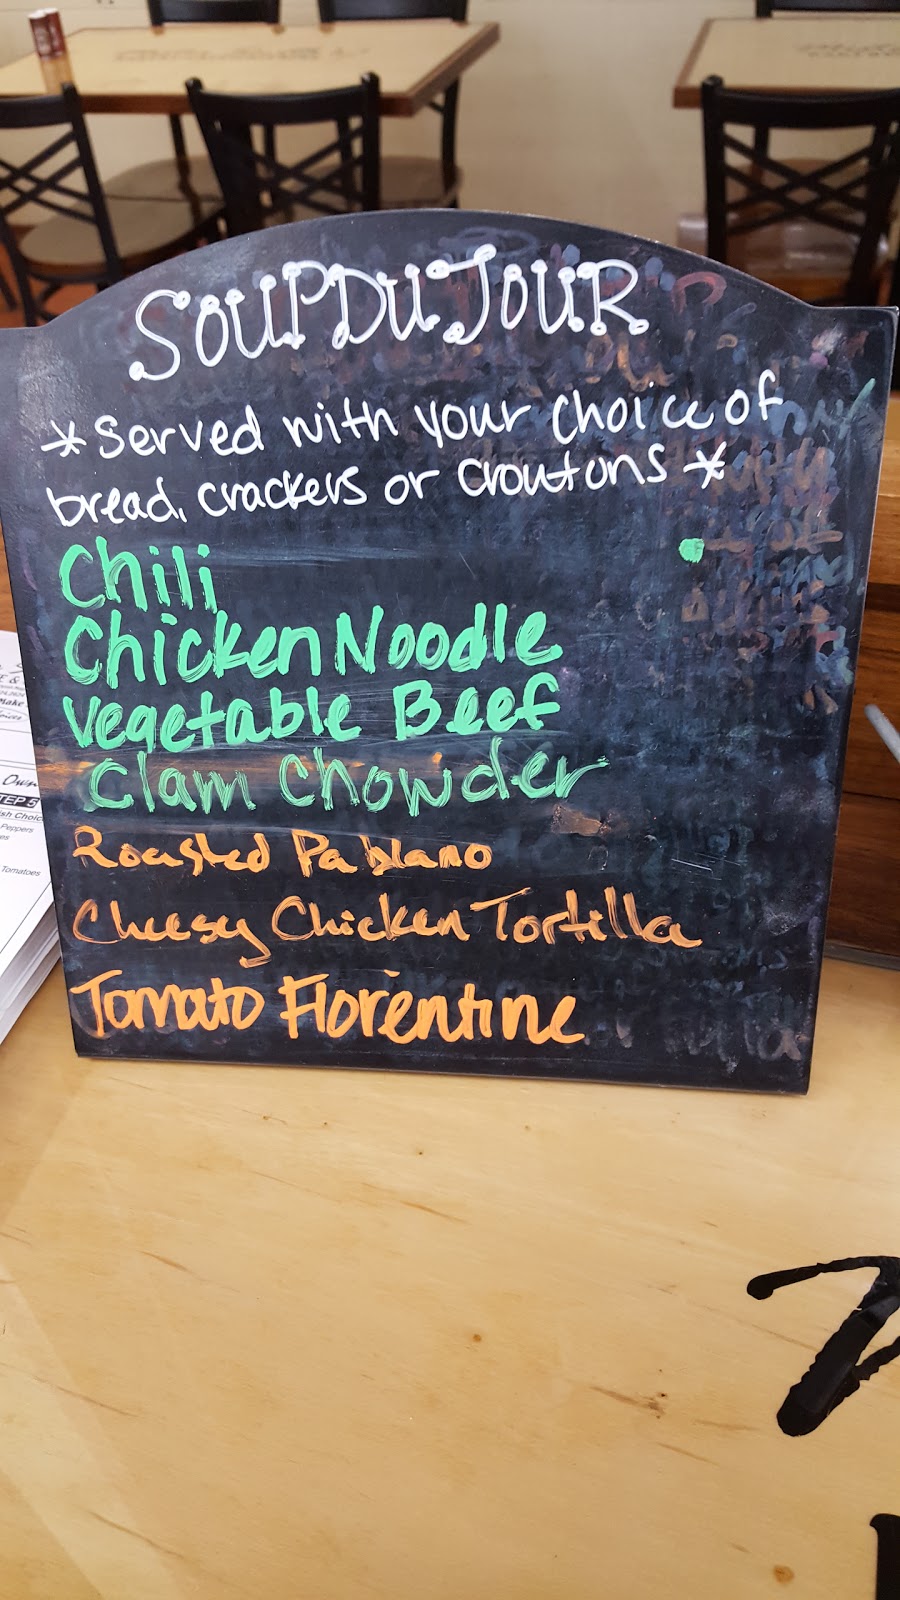 SOUP DU JOUR
*Served with your choice of
bread, crackers or croutons *
Chili
Chicken Noodle
Vegetable Beef
Clam Chowder
Roasted Pablano
Cheesy Chicken Tortilla
Tomato Florentine
Make
Own
STEP 5
Peppers
Tomatoes